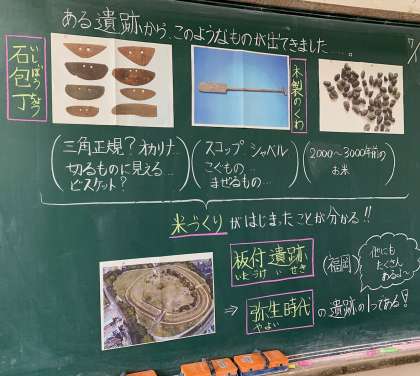 ある遺跡から、このようなものが出てきました……。
石包丁
いしぼうちょう
木製のくわ
三角定規？オカリナ…
切るものに見える…
ビスケット？
スコップ シャベル
こぐもの…
まぜるもの…
2000〜3000年前の
お米
米づくりがはじまったことが分かる!!
板付遺跡
いたづけいせき
(福岡)
他にも
たくさん
あるよ〜
→ 弥生時代の遺跡の1つである!
やよい